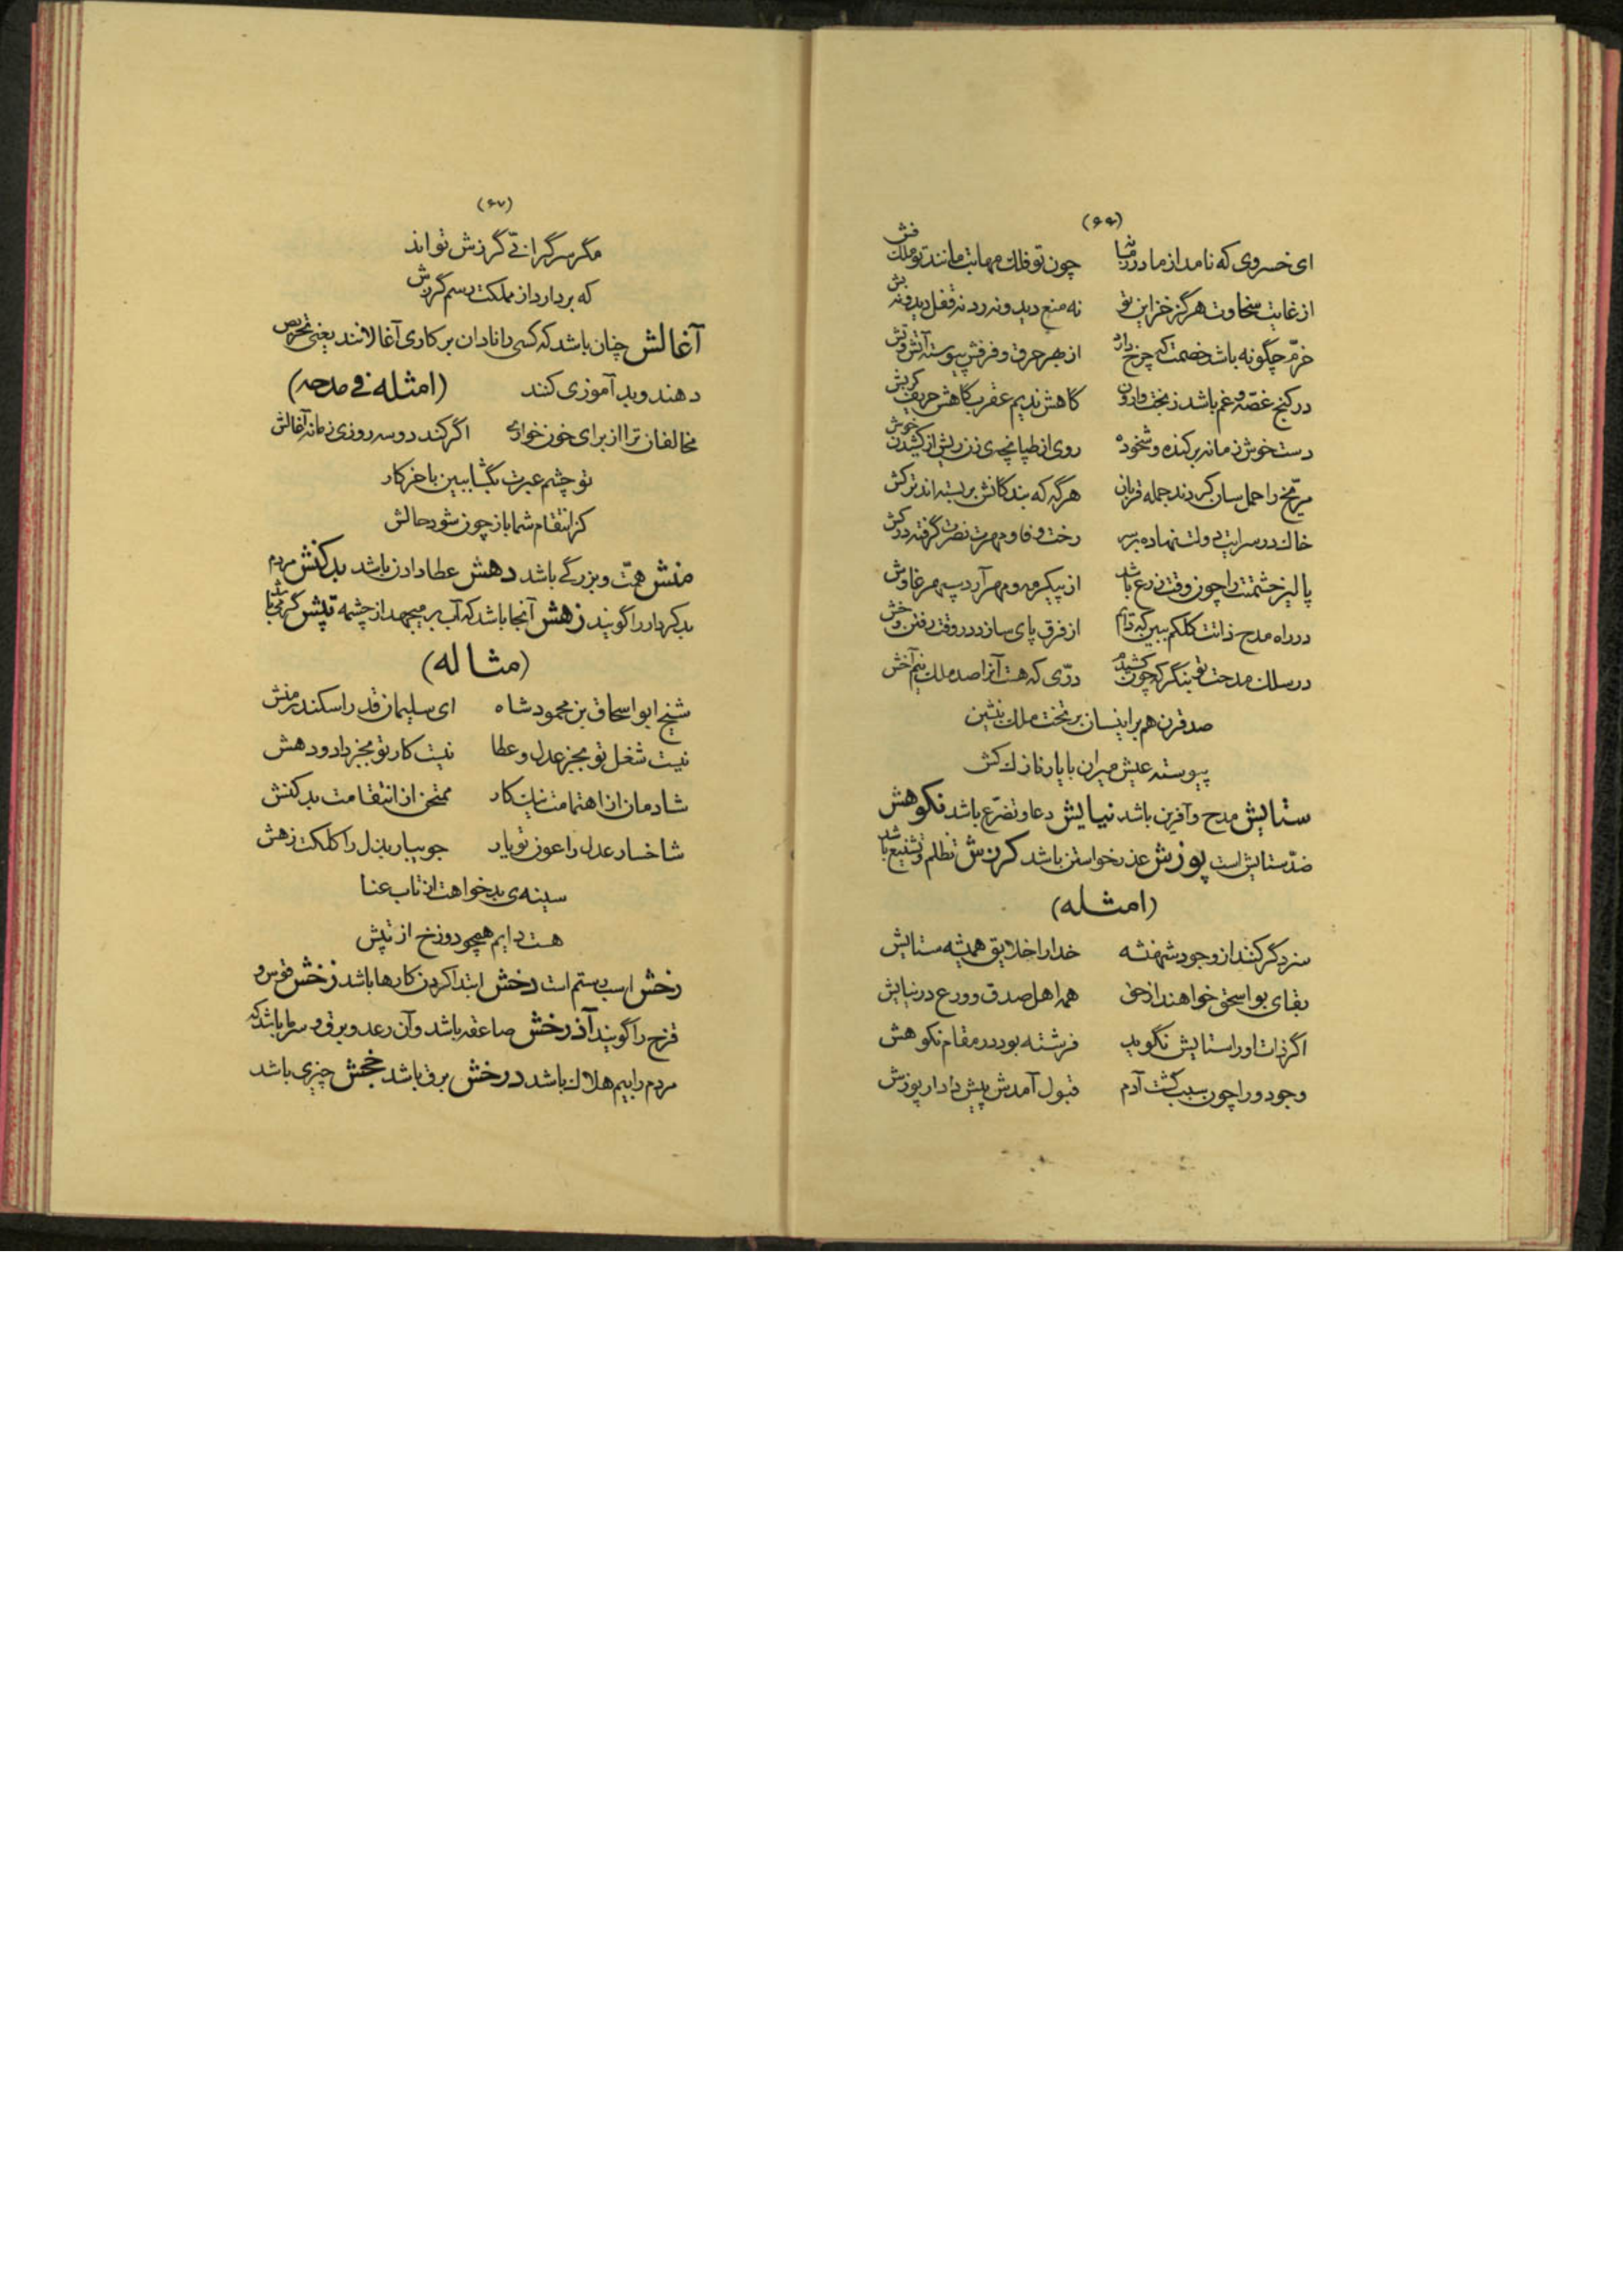 (۶۶)
ای خسروی که نامد از مادر زمانه چون تو فلک مهابت مانند تو ملک فش
از غایت سخاوت هرگز خزاین تو نه منع دید و نه رد نه قفل دید و نه بش
خرّم چگونه باشد خصمت که چرخ دارد از بهر حرق و فرقش پیوسته آتش و تش
در کنج غصّه و غم باشد ز بخت وارون کاهش ندیم عقرب کاهش حریف کربش
دست خوش زمانه برکنده و شخوده روی از طپانچه‌ی زن ریش از کشیدن خوش
مرّیخ را حمل سان کردند جمله قربان هر گه که بندگانش بر بسته‌اند ترکش
خاک در سرایت دولت نهاده بر سر رخت وفا و مهرت نصرت گرفته در کش
پالیز حشمتت را چون وقت زرع باشد از پیکر مه و مهر آرد سپهر غاوش
در راه مدح ذاتت کلکم ببین که دایم از فرق پای سازد در وقت رفتن وخش
در سلک مدحت تو بنگر که چون کشیدم درّی که هست آنرا صد ملک نیم آخش
صد قرن هم براینسان بر تخت ملک بنشین
پیوسته عیش میران با یار نازک کش
ستایش مدح و آفرین باشد نیایش دعا و تضرّع باشد نکوهش
ضدّ ستایش است پوزش عذر خواستن باشد کرزش تظلم و تشنیع باشد
(امثله)
سزد گر کنند از وجود شهنشه خدا را خلایق همیشه ستایش
بقای بو اسحق خواهند از حق همه اهل صدق و ورع در نیایش
اگر ذات او را ستایش نگوید فرشته بود در مقام نکوهش
وجود ورا چون سبب گشت آدم قبول آمدش پیش دادار پوزش
(۶۷)
مگر سرگرانی گرزش تواند
که بردارد از مملکت رسم کرزش
آغالش چنان باشد که کسی را نادان بر کاری آغالانند یعنی تحریص
دهند و بد آموزی کنند (امثله فی مدحه)
مخالفان ترا از برای خون خواری اگر کند دو سه روزی زمانه آغالش
تو چشم عبرت بگشا ببین باخر کار
کز انتقام شما باز چون شود حالش
منش همّت و بزرگی باشد دهش عطا دادن باشد بدکنش مردم
بد کردار را گویند زهش آنجا باشد که آب بر میجهد از چشمه تپش گرمی باشد
(مثاله)
شیخ ابو اسحاق بن محمود شاه ای سلیمان قدر اسکندر منش
نیست شغل تو بجز عدل و عطا نیست کار تو بجز داد و دهش
شادمان از اهتمامت نیک کار ممتحن از انتقامت بد کنش
شاخسار عدل را عون تو بار جویبار بذل را کلکت زهش
سینه‌ی بدخواهت از تاب عنا
هست دایم همچو دوزخ از تپش
رخش اسب رستم است دخش ابتدا کردن کارها باشد زخش قوس و
قزح را گویند آذرخش صاعقه باشد و آن رعد و برق و سرما باشد که
مردم را بیم هلاک باشد درخش برق باشد خجش چیزی باشد